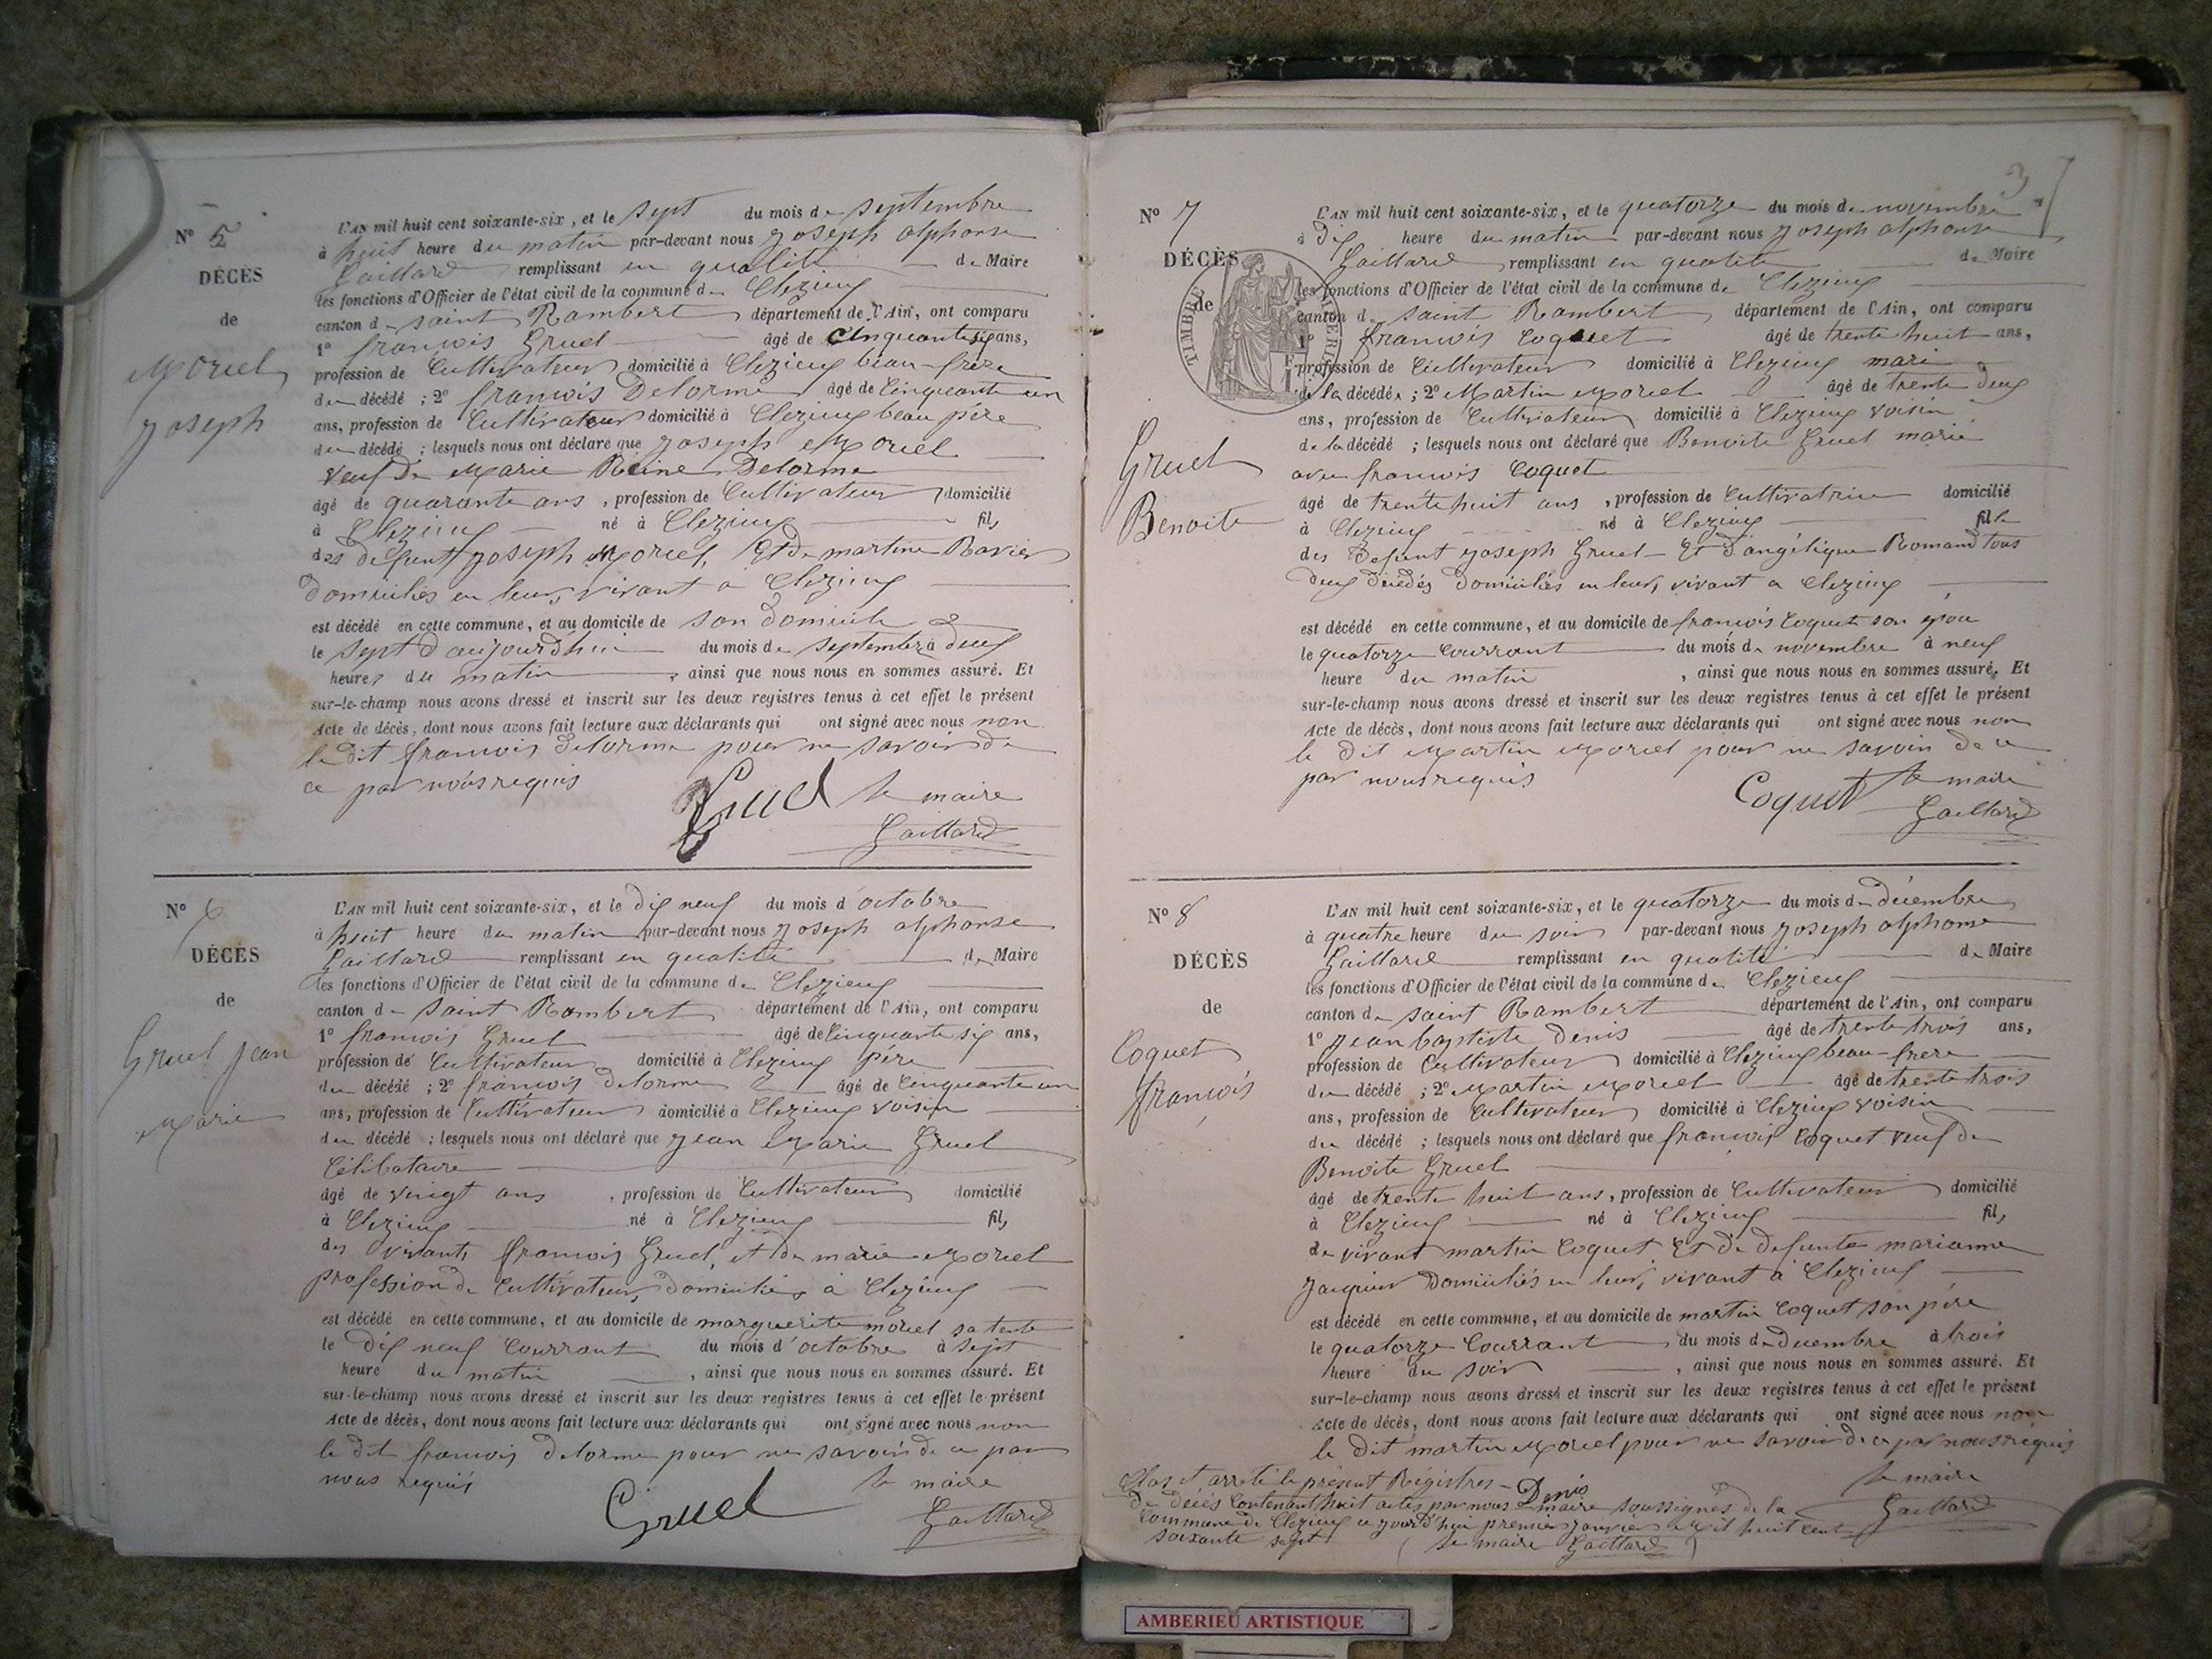 N° 5
DÉCÈS
de
Moriel
Joseph
L'AN mil huit cent soixante-six, et le sept du mois de septembre
à huit heure du matin par-devant nous Joseph alphonse
Gaillard remplissant en qualité de Maire
les fonctions d'Officier de l'état civil de la commune de Clezieux
canton de saint Rambert département de l'Ain, ont comparu
1° françois Gruel âgé de Cinquante six ans,
profession de Cultivateur domicilié à Clezieux beau-frère
du décédé ; 2° françois Delorme âgé de Cinquante un
ans, profession de Cultivateur domicilié à Clezieux beau père
du décédé ; lesquels nous ont déclaré que Joseph Moriel
Veuf de Marie Reine Delorme
âgé de quarante ans, profession de Cultivateur domicilié
à Clezieux né à Clezieux fils
des defunt Joseph Moriel, Et de martine Ravier
Domiciliés en leurs vivant a Clezieux
est décédé en cette commune, et au domicile de son domicile
le sept d'aujourd'hui du mois de septembre à deux
heures du matin, ainsi que nous nous en sommes assuré. Et
sur-le-champ nous avons dressé et inscrit sur les deux registres tenus à cet effet le présent
Acte de décès, dont nous avons fait lecture aux déclarants qui ont signé avec nous non
le dit françois Delorme pour ne savoir de
ce par nous requis
Gruel le maire
Gaillard
N° 6
DÉCÈS
de
Gruel Jean
Marie
L'AN mil huit cent soixante-six, et le dix neuf du mois d'octobre
à huit heure du matin par-devant nous Joseph alphonse
Gaillard remplissant en qualité de Maire
les fonctions d'Officier de l'état civil de la commune de Clezieux
canton de saint Rambert département de l'Ain, ont comparu
1° françois Gruel âgé de Cinquante six ans,
profession de Cultivateur domicilié à Clezieux père
du décédé ; 2° françois Delorme âgé de Cinquante un
ans, profession de Cultivateur domicilié à Clezieux voisin
du décédé ; lesquels nous ont déclaré que Jean Marie Gruel
Célibataire
âgé de vingt ans, profession de Cultivateur domicilié
à Clezieux né à Clezieux fils
des vivants françois Gruel, et de marie Moriel
profession de Cultivateurs domiciliés à Clezieux
est décédé en cette commune, et au domicile de marguerite moriel sa tente
le dix neuf Courrant du mois d'octobre à sept
heure du matin, ainsi que nous nous en sommes assuré. Et
sur-le-champ nous avons dressé et inscrit sur les deux registres tenus à cet effet le présent
Acte de décès, dont nous avons fait lecture aux déclarants qui ont signé avec nous non
le dit françois Delorme pour ne savoir de ce par
nous requis le maire
Gruel Gaillard
3
N° 7
DÉCÈS
de
TIMBRE IMPÉRIAL
Gruel
Benoite
L'AN mil huit cent soixante-six, et le quatorze du mois de novembre
à dix heure du matin par-devant nous Joseph alphonse
Gaillard remplissant en qualité de Maire
les fonctions d'Officier de l'état civil de la commune de Clezieux
canton de saint Rambert département de l'Ain, ont comparu
1° françois Coquet âgé de trente huit ans,
profession de Cultivateur domicilié à Clezieux mari
de la décédée ; 2° Martin Moriel âgé de trente deux
ans, profession de Cultivateur domicilié à Clezieux voisin
de la décédé ; lesquels nous ont déclaré que Benoite Gruel marié
avec françois Coquet
âgé de trente huit ans, profession de Cultivatrice domicilié
à Clezieux né à Clezieux fille
des Defunt Joseph Gruel Et d'angélique Romand tous
deux décédés domiciliés en leurs vivant a Clezieux
est décédé en cette commune, et au domicile de françois Coquet son épou
le quatorze Courrant du mois de novembre à neuf
heure du matin, ainsi que nous nous en sommes assuré. Et
sur-le-champ nous avons dressé et inscrit sur les deux registres tenus à cet effet le présent
Acte de décès, dont nous avons fait lecture aux déclarants qui ont signé avec nous non
le dit Martin Moriel pour ne savoir de ce
par nous requis le maire
Coquet Gaillard
N° 8
DÉCÈS
de
Coquet
françois
L'AN mil huit cent soixante-six, et le quatorze du mois de décembre
à quatre heure du soir par-devant nous Joseph alphonse
Gaillard remplissant en qualité de Maire
les fonctions d'Officier de l'état civil de la commune de Clezieux
canton de saint Rambert département de l'Ain, ont comparu
1° Jean baptiste Denis âgé de trente trois ans,
profession de Cultivateur domicilié à Clezieux beau-frere
du décédé ; 2° Martin Moriel âgé de trente trois
ans, profession de Cultivateur domicilié à Clezieux voisin
du décédé ; lesquels nous ont déclaré que françois Coquet veuf de
Benoite Gruel
âgé de trente huit ans, profession de Cultivateur domicilié
à Clezieux né à Clezieux fils
de vivant martin Coquet Et de defunte marianne
Jaquier Domiciliés en leurs vivant à Clezieux
est décédé en cette commune, et au domicile de martin Coquet son père
le quatorze Courrant du mois de decembre à trois
heure du soir, ainsi que nous nous en sommes assuré. Et
sur-le-champ nous avons dressé et inscrit sur les deux registres tenus à cet effet le présent
Acte de décès, dont nous avons fait lecture aux déclarants qui ont signé avec nous non
le dit martin Moriel pour ne savoir de ce par nous requis
Denis le maire
Gaillard
Clos et arreté le présent Régistres
de décés Contenant huit actes par nous maire soussignés de la
Commune de Clezieux ce jourd'hui premier janvier Mil huit cent
soixante sept
le maire Gaillard
AMBERIEU ARTISTIQUE